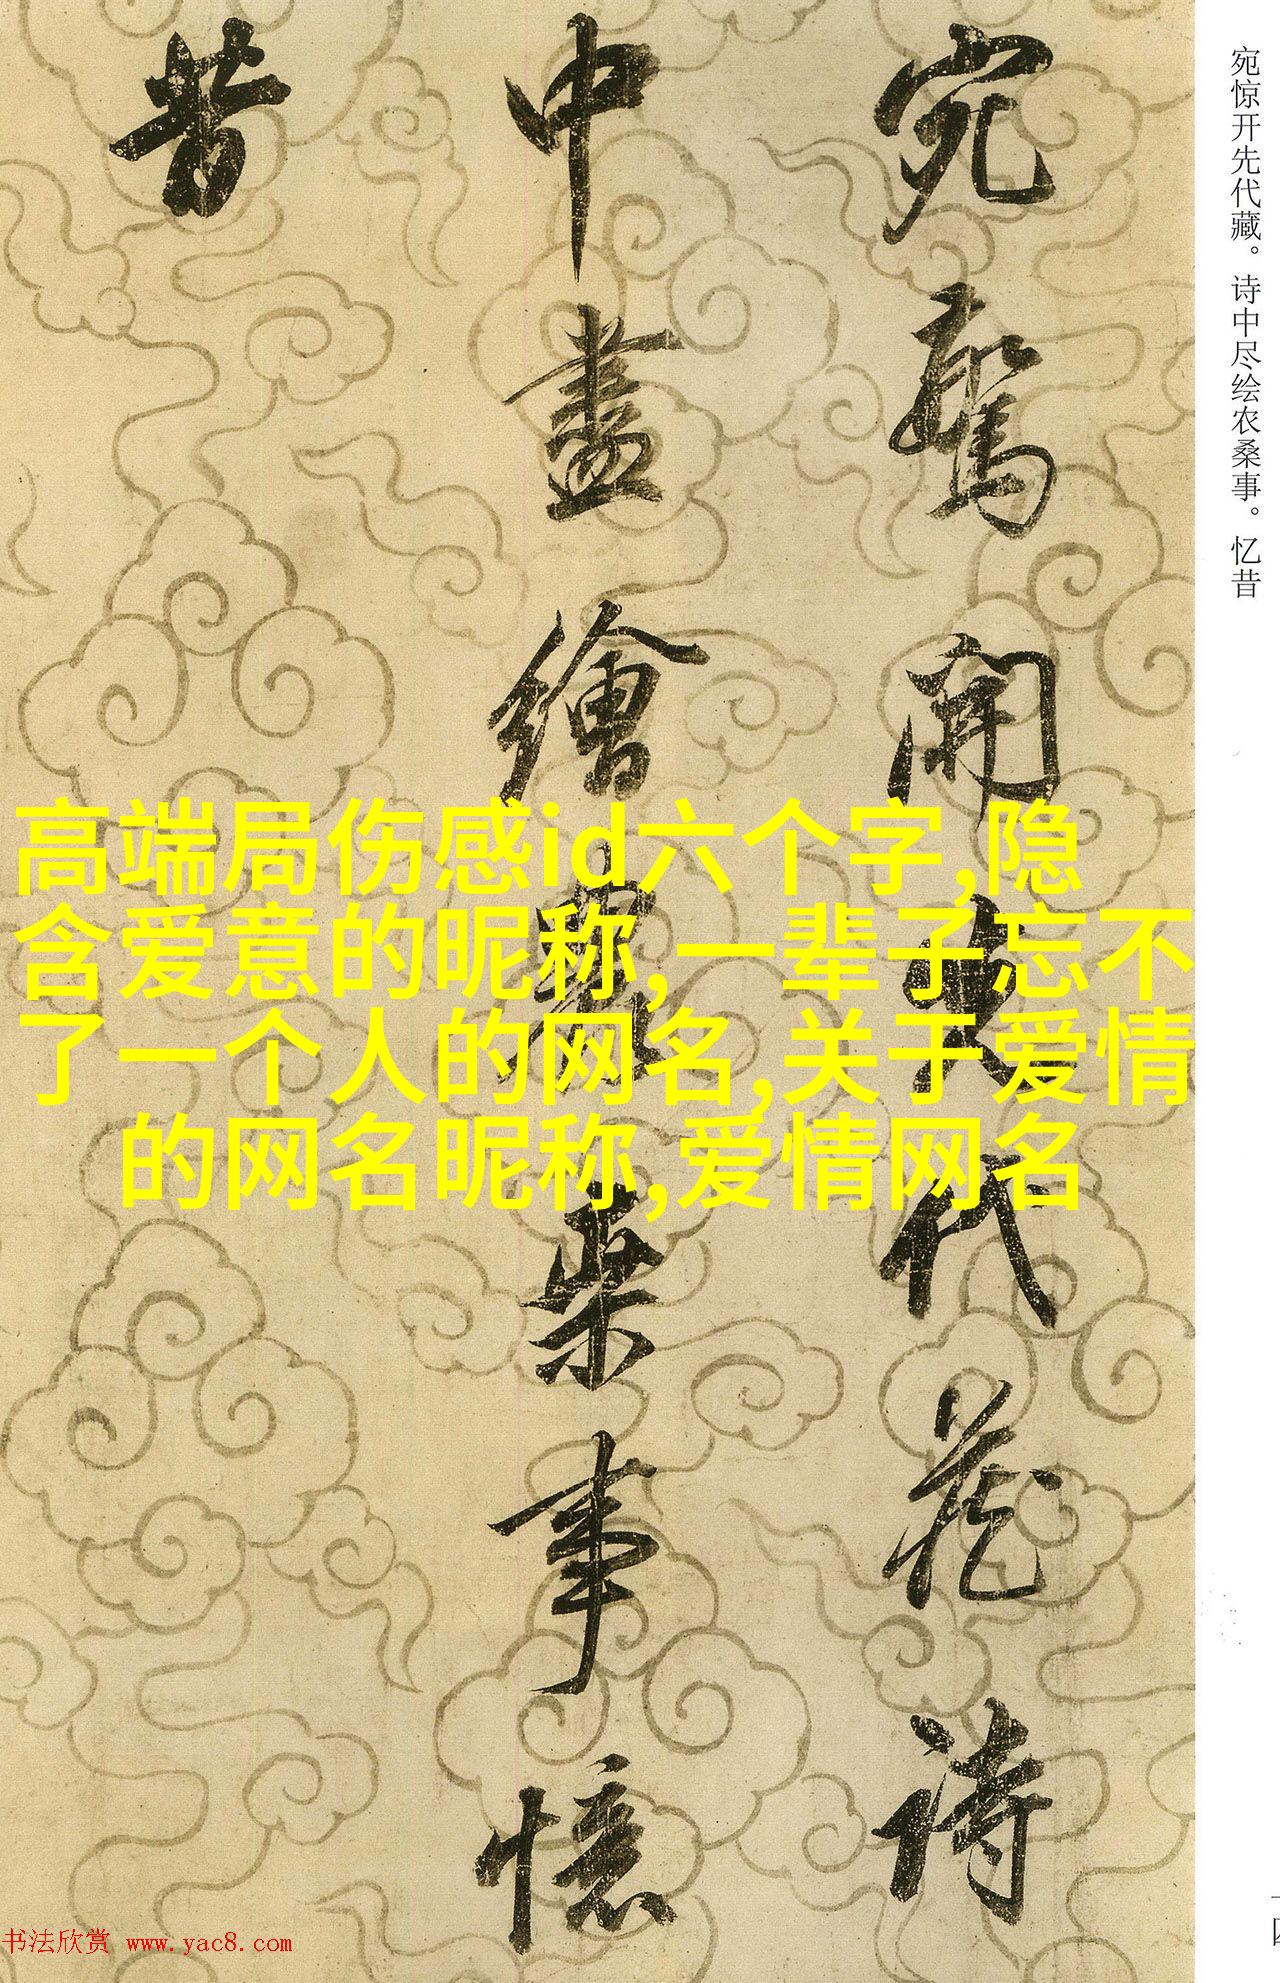 宛驚開先代藏诗
中盡繪農桒事憶
昔
宛惊开先代藏。诗中尽绘农桑事。忆昔
高端局伤感id六个字,隐
含爱意的昵称,一辈子忘不
了一个人的网名,关于爱情
的网名昵称,爱情网名
书法欣赏 www.yac8.com